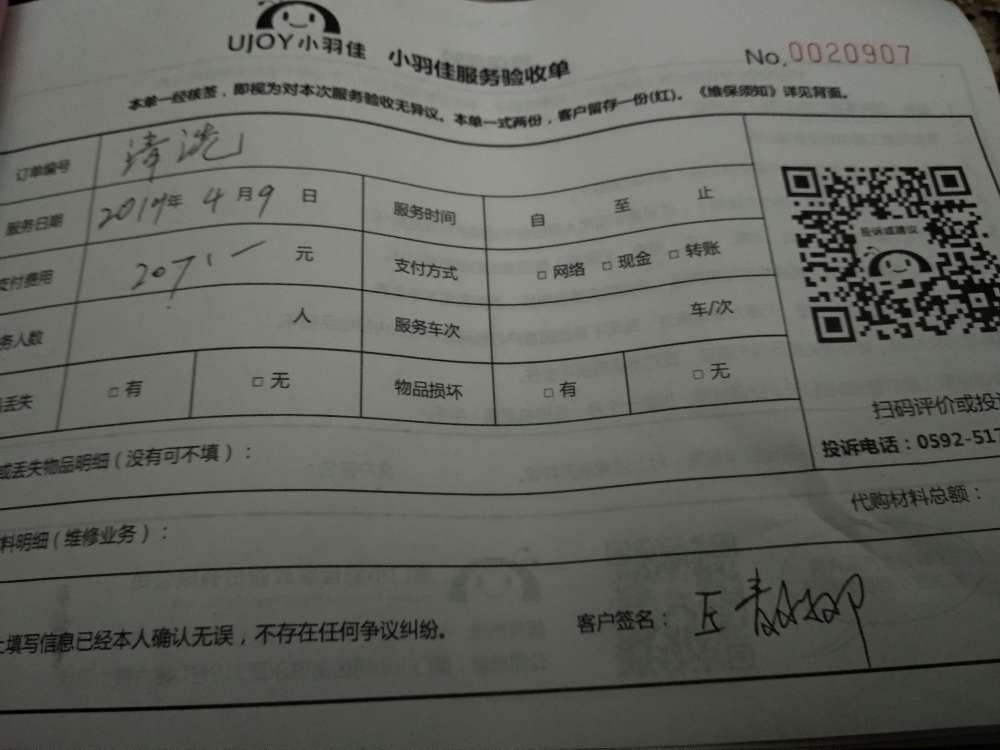 UJOY小羽佳 小羽佳服务验收单 No.0020907
本单一经核签，即视为对本次服务验收无异议。本单一式两份，客户留存一份(红)。《维保须知》详见背面。
订单编号 清洗
服务日期 2019年 4月9日 服务时间 自 至 止
支付费用 207 元 支付方式 □网络 □现金 □转账
务人数 人 服务车次 车/次
丢失 □有 □无 物品损坏 □有 □无
投诉或建议
扫码评价或投
投诉电话：0592-517
或丢失物品明细（没有可不填）：
料明细（维修业务）： 代购材料总额：
填写信息已经本人确认无误，不存在任何争议纠纷。 客户签名：